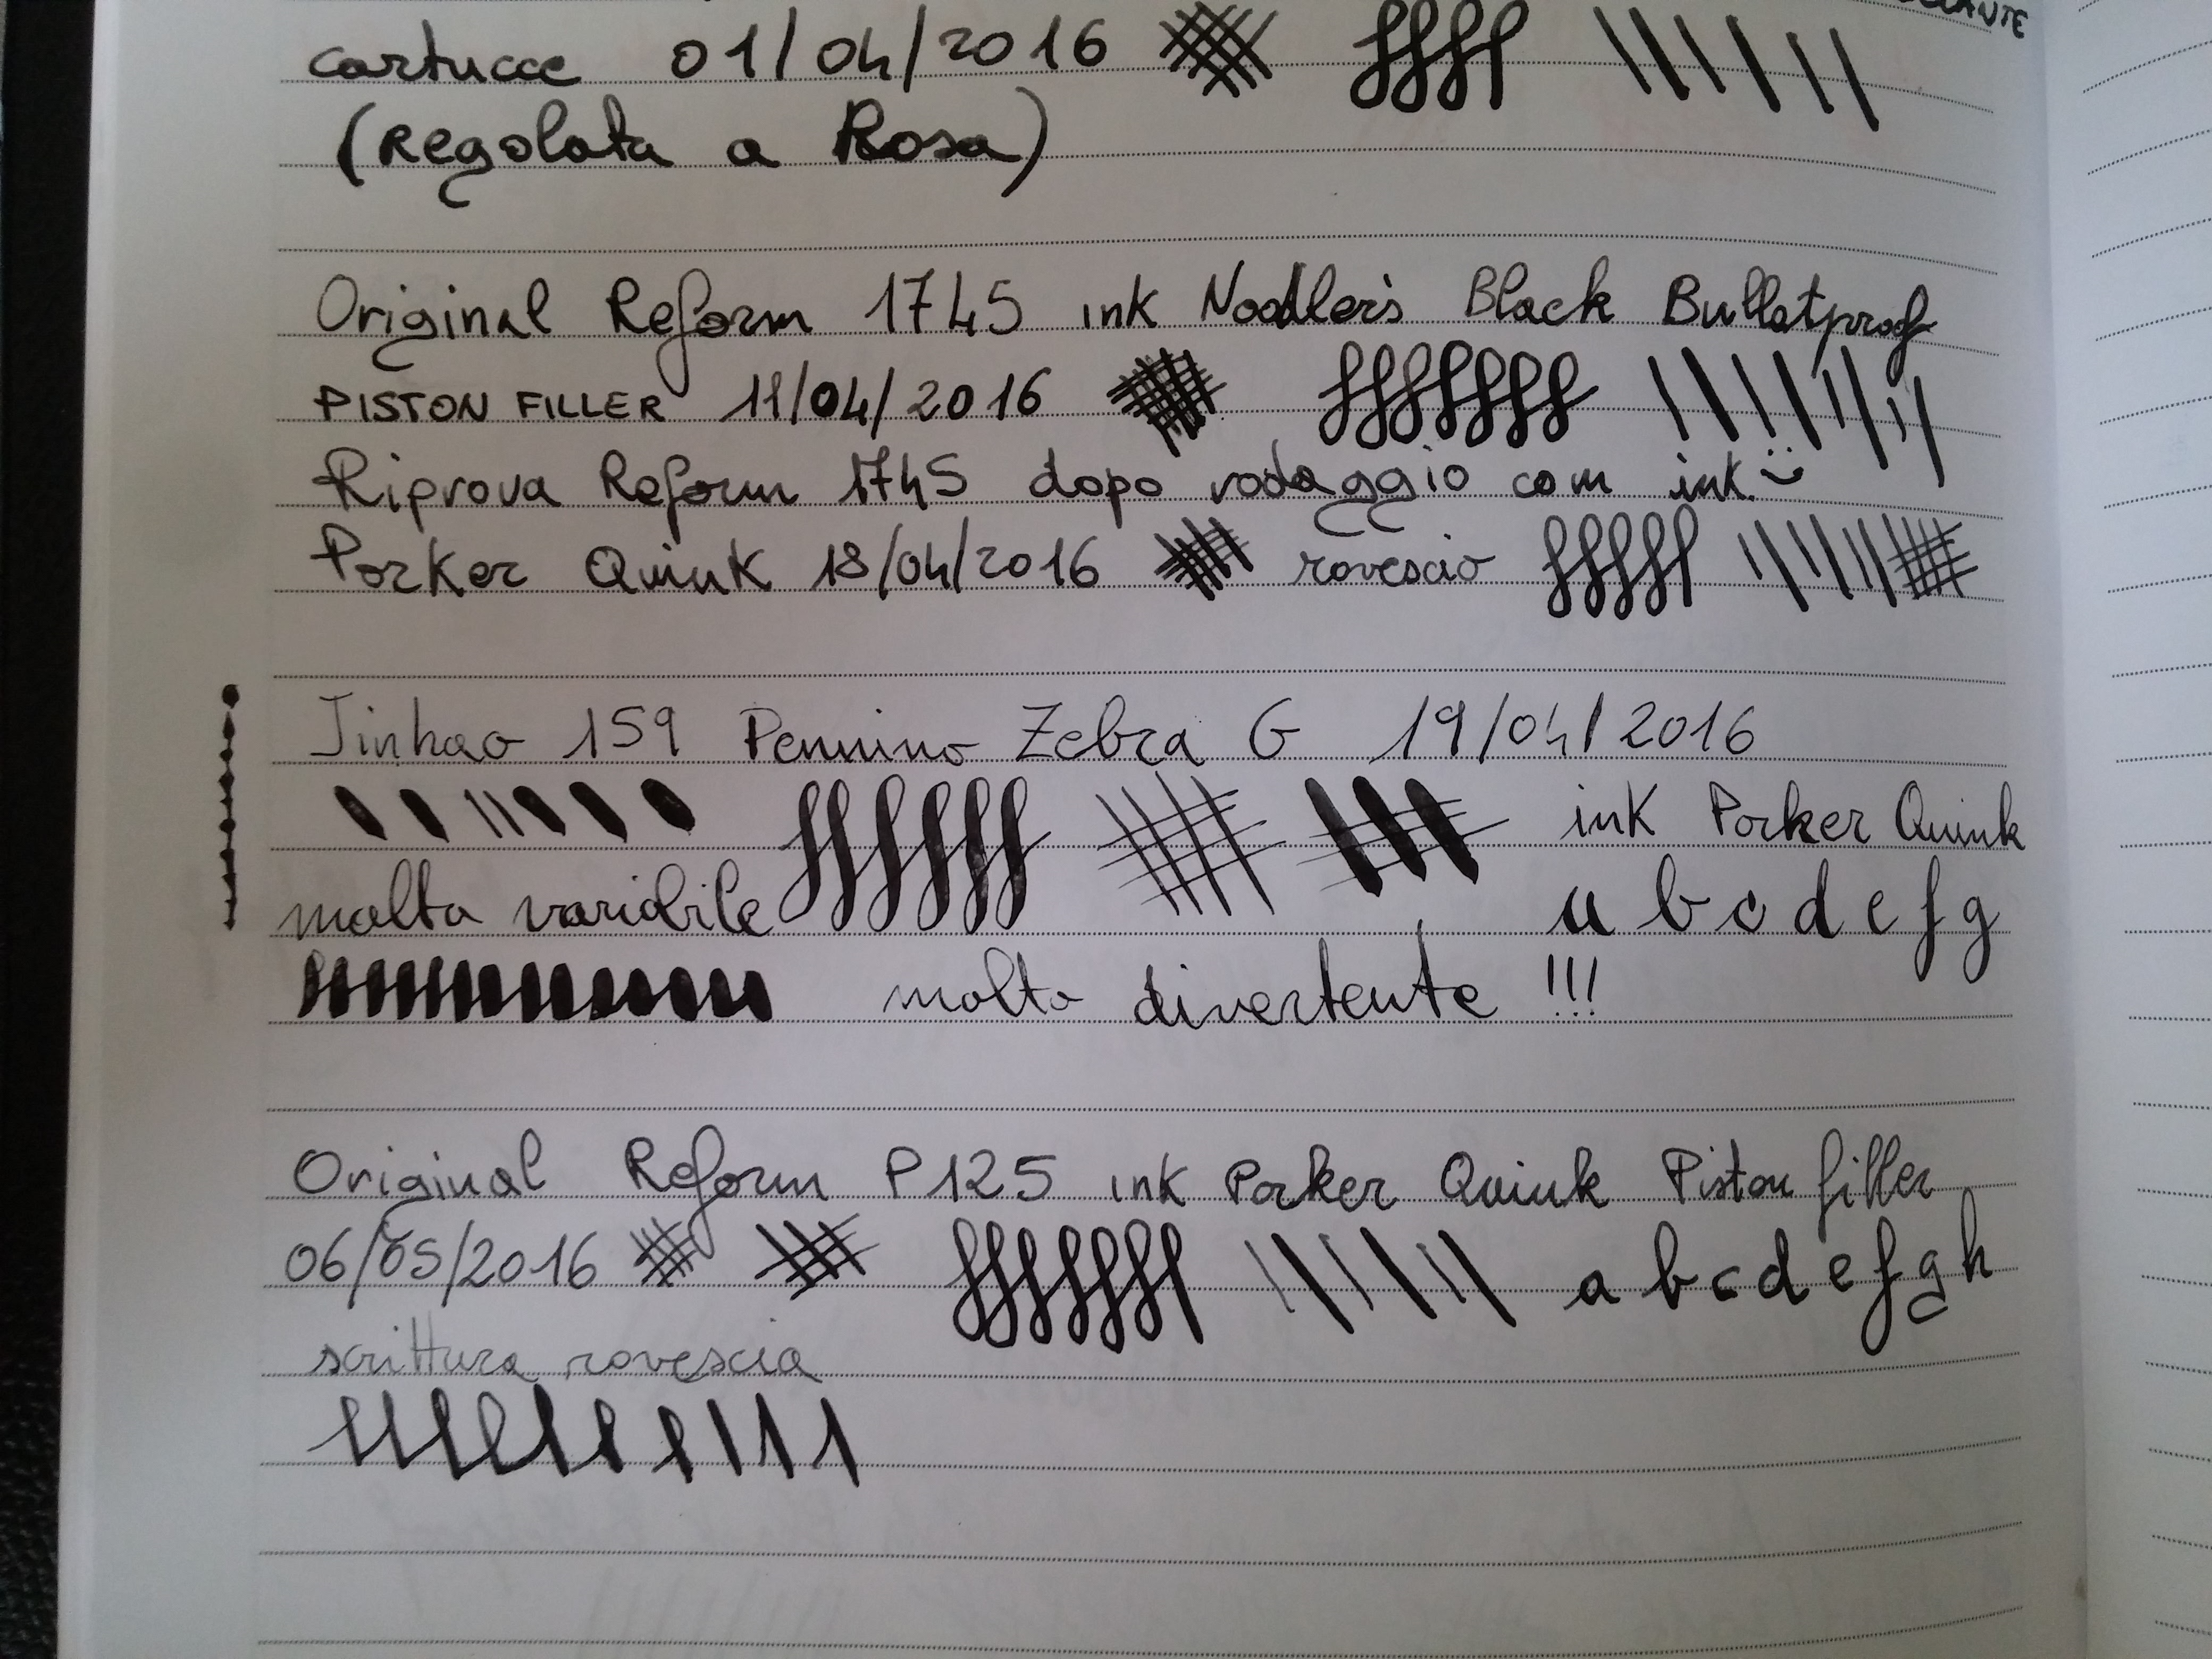 cartucce 01/04/2016
(Regolata a Rosa)
Original Reform 1745 ink Noodler's Black Bullatproof
PISTON FILLER 11/04/2016
Riprova Reform 1745 dopo rodaggio con ink.
Parker Quink 18/04/2016 rovescio
Jinhao 159 Pennino Zebra G 19/04/2016
ink Parker Quink
molto variabile a b c d e f g
molto divertente !!!
Original Reform P125 ink Parker Quink Piston filler
06/05/2016 a b c d e f g h
scrittura rovescia